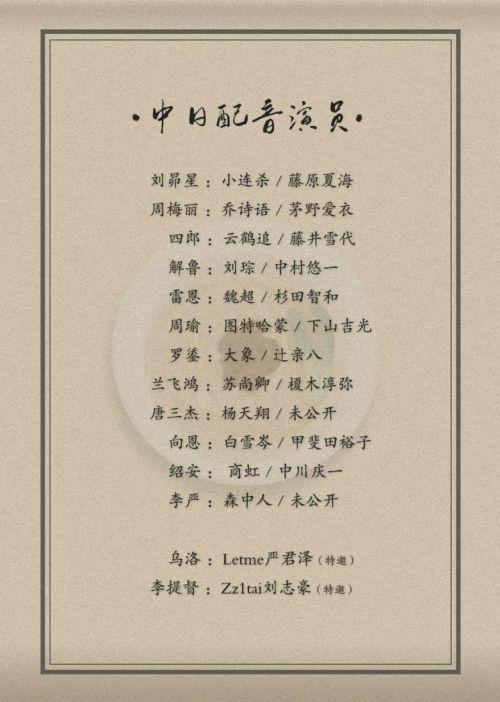 ·中日配音演员·
刘昴星：小连杀/藤原夏海
周梅丽：乔诗语/茅野爱衣
四郎：云鹤追/藤井雪代
解鲁：刘琮/中村悠一
雷恩：魏超/杉田智和
周瑜：图特哈蒙/下山吉光
罗鎏：大象/辻亲八
兰飞鸿：苏尚卿/榎木淳弥
唐三杰：杨天翔/未公开
向恩：白雪岑/甲斐田裕子
绍安：商虹/中川庆一
李严：森中人/未公开
乌洛：Letme严君泽（特邀）
李提督：Zz1tai刘志豪（特邀）